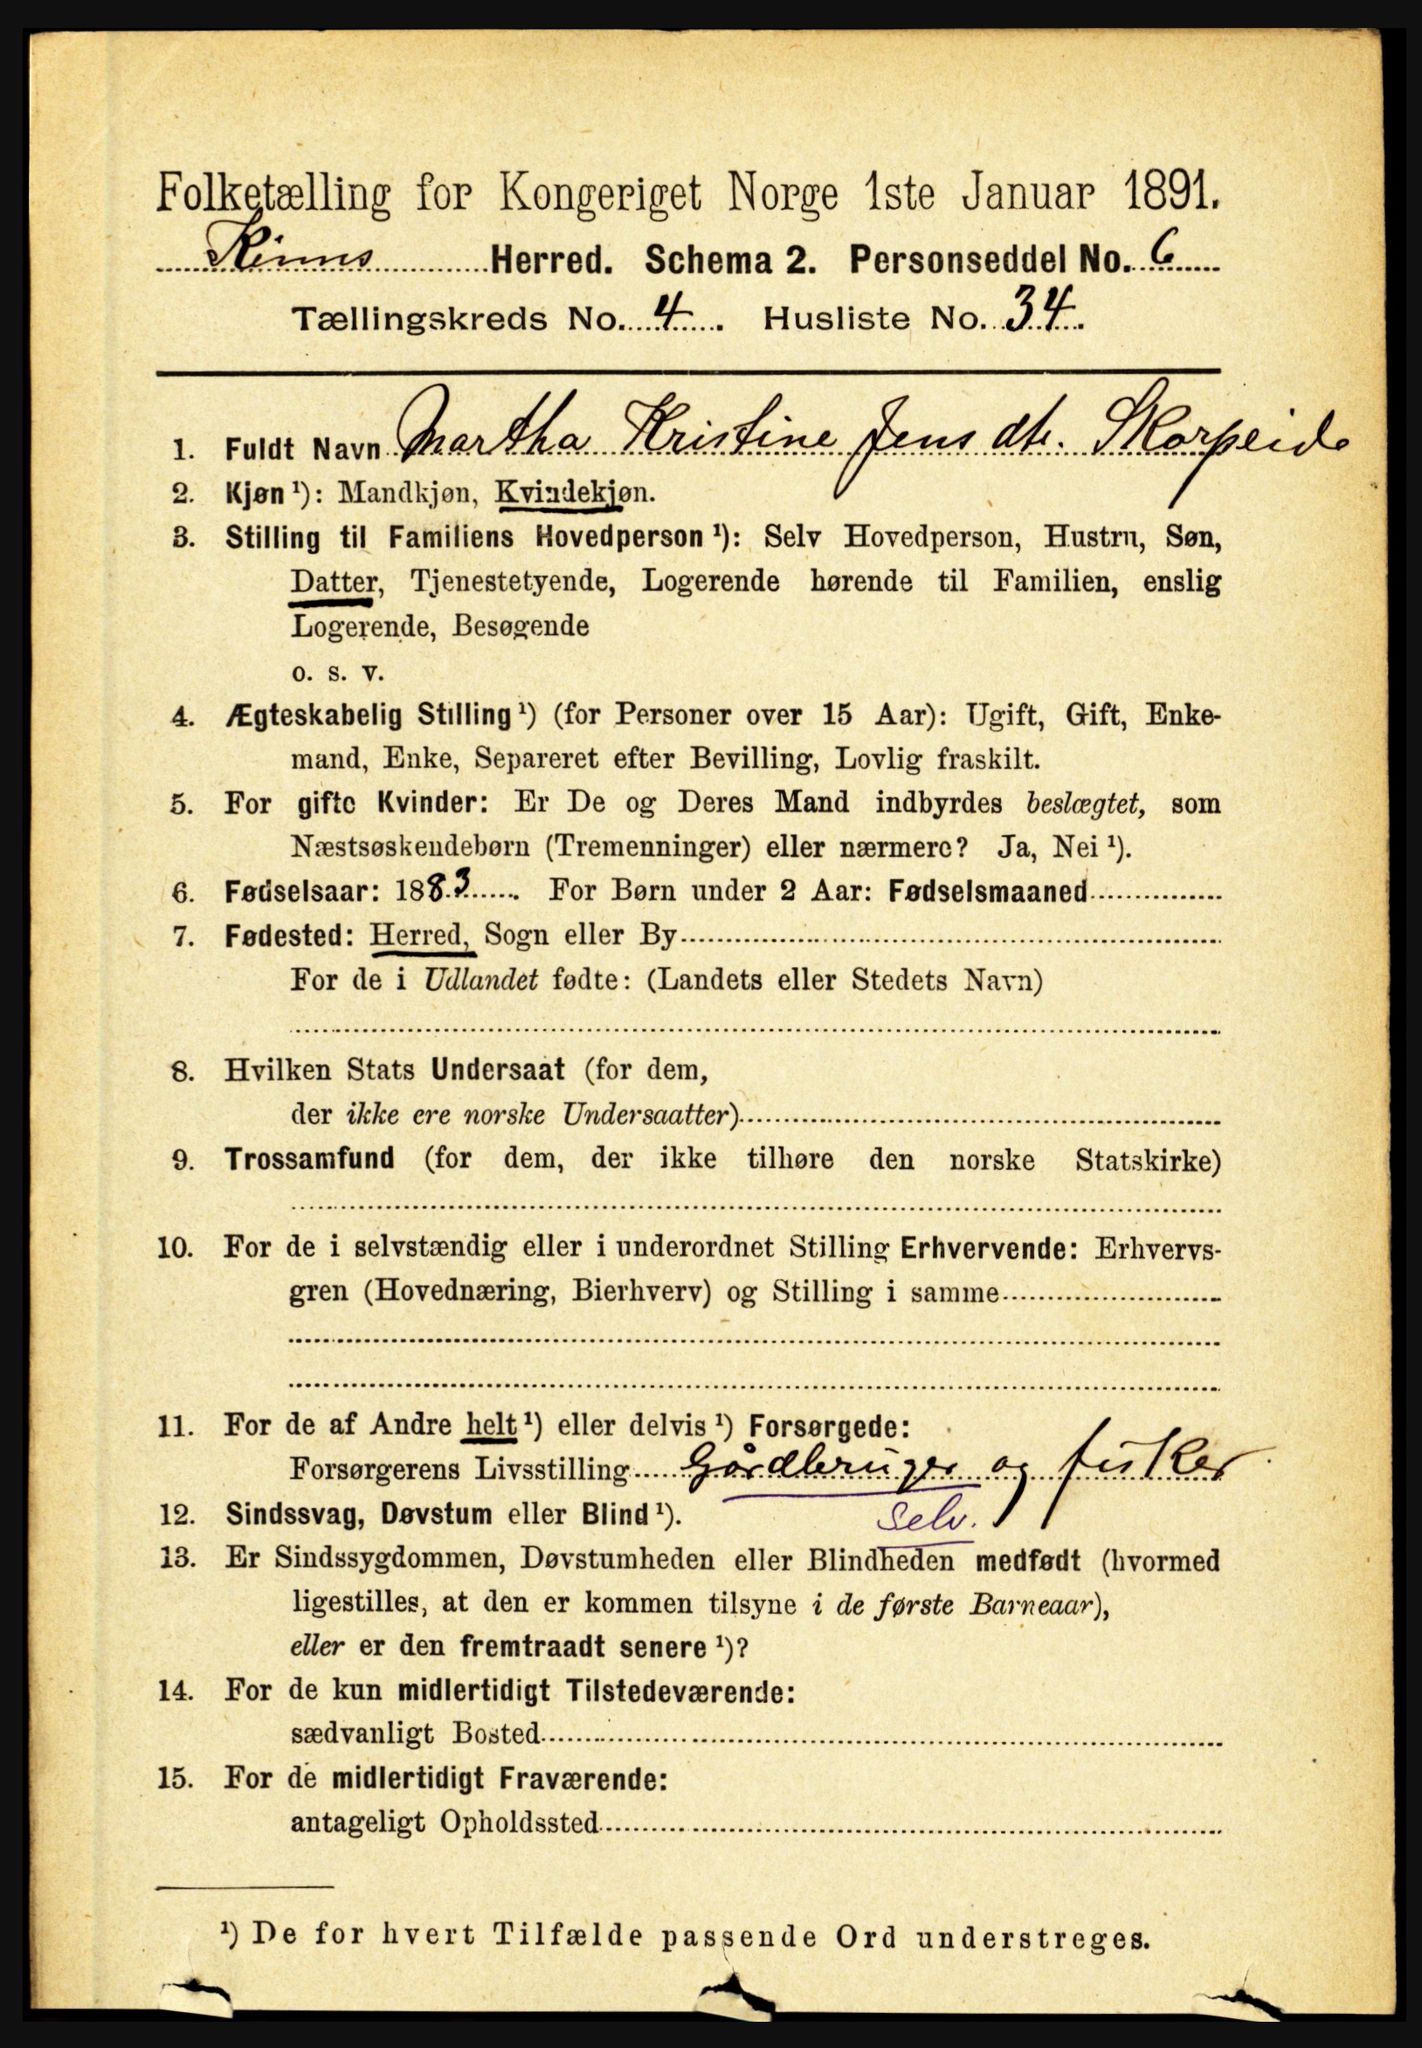 Folketælling for Kongeriget Norge 1ste Januar 1891.
Kinns Herred. Schema 2. Personseddel No. 6
Tællingskreds No. 4. Husliste No. 34.
1. Fuldt Navn Martha Kristine Jensdtr. Skorpeide
2. Kjøn ¹): Mandkjøn, Kvindekjøn.
3. Stilling til Familiens Hovedperson ¹): Selv Hovedperson, Hustru, Søn,
Datter, Tjenestetyende, Logerende hørende til Familien, enslig
Logerende, Besøgende
o. s. v.
4. Ægteskabelig Stilling ¹) (for Personer over 15 Aar): Ugift, Gift, Enke-
mand, Enke, Separeret efter Bevilling, Lovlig fraskilt.
5. For gifte Kvinder: Er De og Deres Mand indbyrdes beslægtet, som
Næstsøskendebørn (Tremenninger) eller nærmere? Ja, Nei ¹).
6. Fødselsaar: 1883. For Børn under 2 Aar: Fødselsmaaned
7. Fødested: Herred, Sogn eller By
For de i Udlandet fødte: (Landets eller Stedets Navn)
8. Hvilken Stats Undersaat (for dem,
der ikke ere norske Undersaatter)
9. Trossamfund (for dem, der ikke tilhøre den norske Statskirke)
10. For de i selvstændig eller i underordnet Stilling Erhvervende: Erhvervs-
gren (Hovednæring, Bierhverv) og Stilling i samme
11. For de af Andre helt ¹) eller delvis ¹) Forsørgede:
Forsørgerens Livsstilling Gårdbruger og fisker
12. Sindssvag, Døvstum eller Blind ¹). Selv.
13. Er Sindssygdommen, Døvstumheden eller Blindheden medfødt (hvormed
ligestilles, at den er kommen tilsyne i de første Barneaar),
eller er den fremtraadt senere ¹)?
14. For de kun midlertidigt Tilstedeværende:
sædvanligt Bosted
15. For de midlertidigt Fraværende:
antageligt Opholdssted
¹) De for hvert Tilfælde passende Ord understreges.